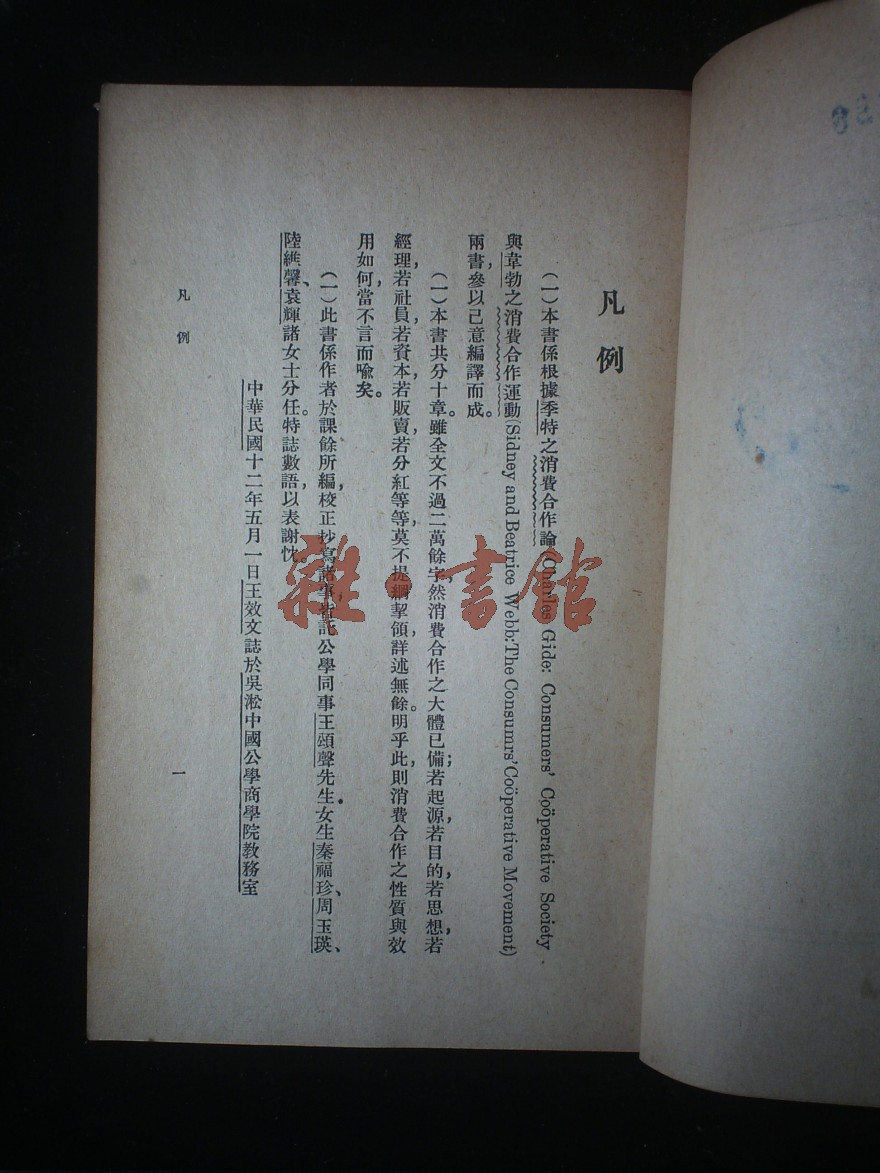 凡例
(一)本書係根據季特之消費合作論(Charles Gide: Consumers' Coöperative Society
與韋勃之消費合作運動(Sidney and Beatrice Webb:The Consumrs'Coöperative Movement)
兩書,參以己意編譯而成。
(一)本書共分十章。雖全文不過二萬餘字,然消費合作之大體已備;若起源,若目的,若思想,若
經理,若社員,若資本,若販賣,若分紅等等,莫不提綱挈領,詳述無餘。明乎此,則消費合作之性質與效
用如何,當不言而喻矣。
(一)此書係作者於課餘所編,校正抄寫諸事皆託公學同事王頌聲先生。女生秦福珍、周玉瑛、
陸維馨、袁輝諸女士分任。特誌數語,以表謝忱。
中華民國十二年五月一日王效文誌於吳淞中國公學商學院教務室
凡例
一
雜·書館